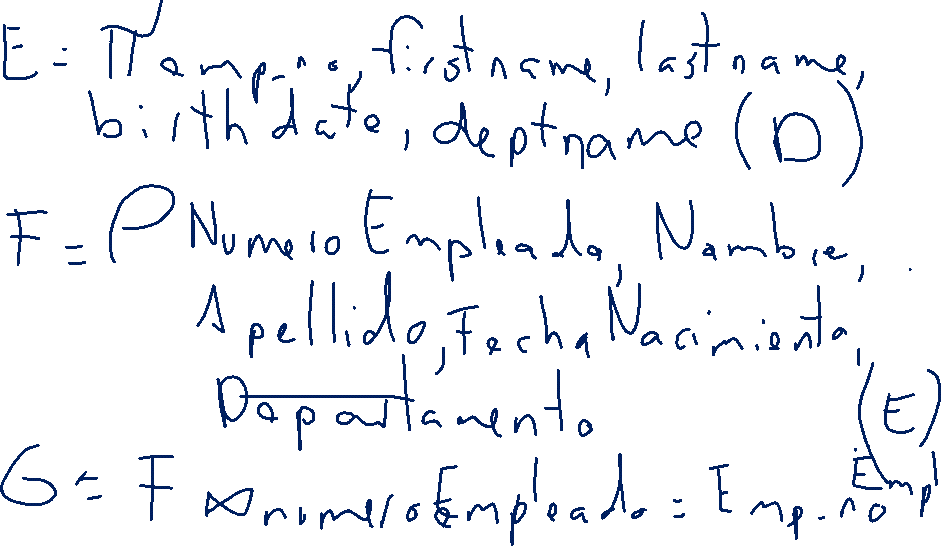 E = π emp_no, firstname, lastname,
birthdate, deptname (D)
F = ρ Numero Empleado, Nombre,
Apellido, Fecha Nacimiento,
Departamento (E)
G = F ⋈ numeroEmpleado = Emp_no Empl